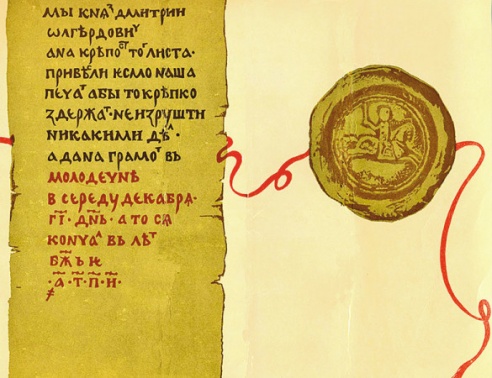 мы кнѧꙁ҇ дмитрии
ѡлгѣрдовиⷱ
а на крѣпоⷭ҇ тоⷢ листа·
привѣли есмо наша
печаⷮ абы то крѣпко
здержаⷮ·неизрушти
никакими дѣⷧ·
а дана грамоⷮ въ
молодечнѣ
в середу декабрѧ·
г҃і·дн҃ь·а то сѧ
кончаⷧ въ лѣⷮ
бж҃ъе
·҂а҃·т҃·п҃·и҃·